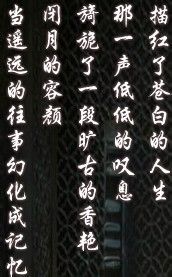 描红了苍白的人生
那一声低低的叹息
旖旎了一段旷古的香艳
闭月的容颜
当遥远的往事幻化成记忆